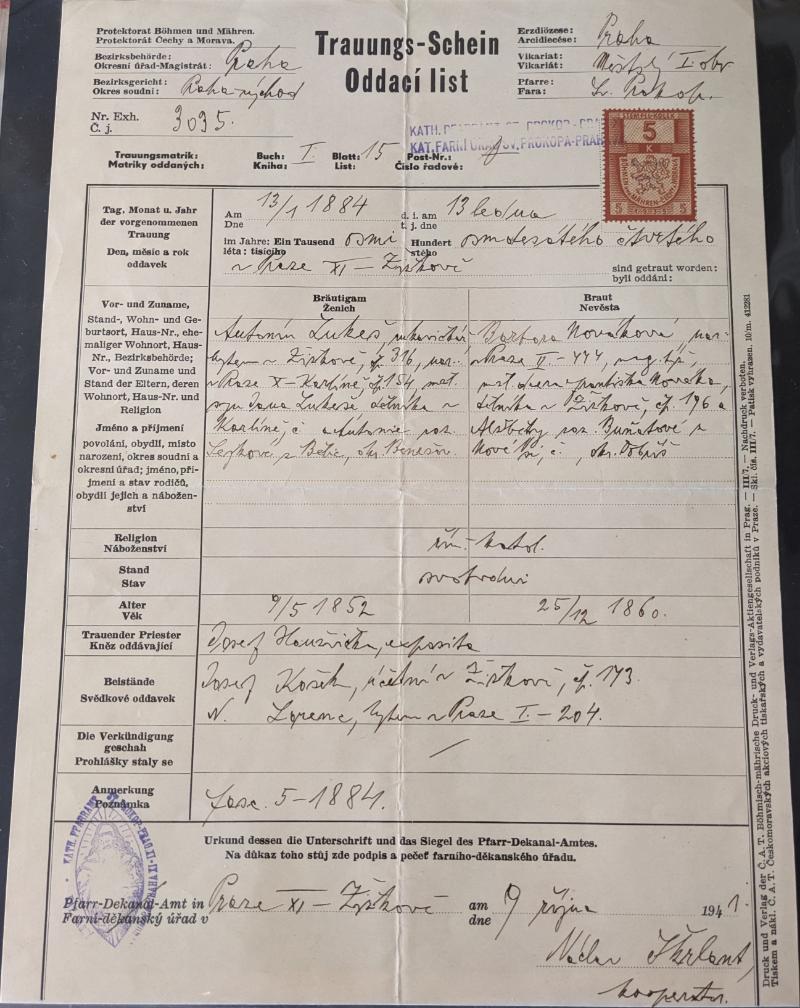 Protektorat Böhmen und Mähren.
Protektorát Čechy a Morava.
Bezirksbehörde:
Okresní úřad-Magistrát: Praha
Bezirksgericht:
Okres soudní: Praha-východ
Nr. Exh.
Č. j. 3095.
Trauungs-Schein
Oddací list
Erzdiözese:
Arcidiecése: Praha
Vikariat:
Vikariát: I. obv
Pfarre:
Fara: Sv. Prokop.
KATH. PFARRAMT ST. PROKOP-PRA
KAT. FARNÍ ÚŘAD SV. PROKOPA-PRAHA
STEMPEL-KOLEK
5
K
BÖHMEN-MÄHREN-ČECHY-MORAVA
5 5
Trauungsmatrik: Buch: Blatt: Post-Nr.:
Matriky oddaných: Kniha: I. List: 15 Číslo řadové:
Tag, Monat u. Jahr
der vorgenommenen
Trauung
Den, měsíc a rok
oddavek
Am 13/1 1884 d. i. am 13 ledna
Dne t. j. dne
im Jahre: Ein Tausend osmi Hundert osmdesátého čtvrtého
léta: tisícího stého
v Praze XI – Žižkově
sind getraut worden:
byli oddáni:
Vor- und Zuname,
Stand-, Wohn- und Ge-
burtsort, Haus-Nr., ehe-
maliger Wohnort, Haus-
Nr., Bezirksbehörde;
Vor- und Zuname und
Stand der Eltern, deren
Wohnort, Haus-Nr. und
Religion
Jméno a příjmení
povolání, obydlí, místo
narození, okres soudní a
okresní úřad; jméno, pří-
jmení a stav rodičů,
obydlí jejich a nábožen-
ství
Bräutigam
Ženich
Antonín Lukeš, rukavičkář
bytem v Žižkově, čp. 316, nar.
v Praze X – Karlíně čp. 154, mžl.
syn Jana Lukeše dělníka v
Karlíně, č. a Antonie roz.
z okr. Benešov.
Braut
Nevěsta
Barbora Nováková nar.
v Praze II – 444,
mžl. dcera Františka Nováka,
dělníka v Žižkově, čp. 196 a
Alžběty roz. z
Nové Vsi, č. , okr. Dobříš
Religion
Náboženství
řím. katol.
Stand
Stav
svobodní
Alter
Věk
9/5 1852
25/12 1860.
Trauender Priester
Kněz oddávající
Josef exposita
Beistände
Svědkové oddavek
Josef Košek, účetní v Žižkově, čp. 173.
N. Lorenc, bytem v Praze I. – 204.
Die Verkündigung
geschah
Prohlášky staly se
Anmerkung
Poznámka
fasc. 5 – 1884.
Urkund dessen die Unterschrift und das Siegel des Pfarr-Dekanal-Amtes.
Na důkaz toho stůj zde podpis a pečeť farního-děkanského úřadu.
Pfarr-Dekanal-Amt in
Farní-děkanský úřad v Praze XI – Žižkově am 9 října 1941.
dne
Václav
kooperátor.
Druck und Verlag der Č. A. T. Böhmisch-mährische Druck- und Verlags-Aktiengesellschaft in Prag. — III/7. — Nachdruck verboten.
Tiskem a nákl. Č. A. T. Českomoravských akciových tiskařských a vydavatelských podniků v Praze. — Skl. čís. III/7. — Patisk vyhrazen. 10/m. 412281